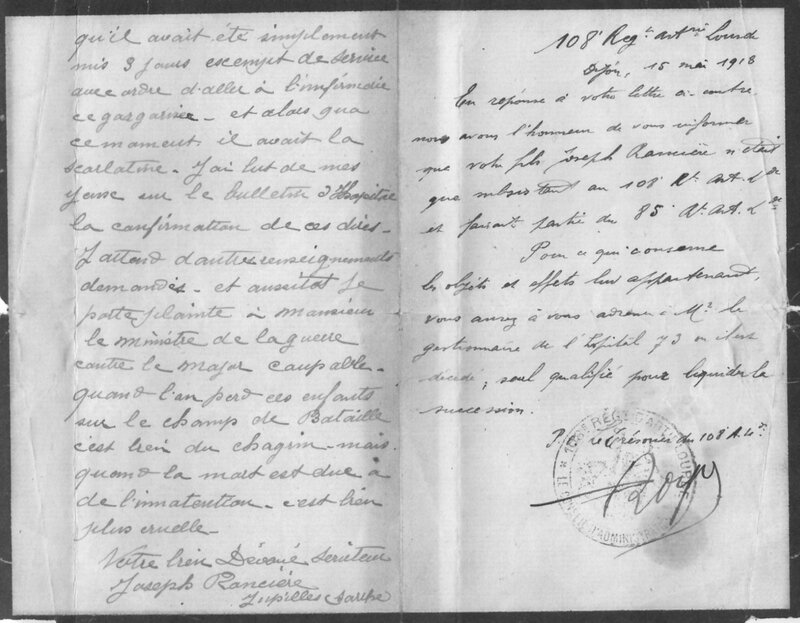 qu'il avait été simplement
mis 3 jours escempt de service
avec ordre d'aller à l'infirmdie
ce gargarisée - et alors qua
ce moment il avait la
scarlatine - J'ai lut de mes
yeuse sur le bulletin d'Hopitre
la confirmation de ces dires -
J'attend d'autre renseignements
demandés - et aussitot je
porte plainte à monsieur
le ministre de la guerre
contre le major coupable -
quand l'on perd ces enfants
sur le champ de Bataille
c'est bien du chagrin - mais
quand la mort est due à
de l'innatention - c'est bien
plus cruelle -
Votre bien Dévoué serviteur
Joseph Rancière
Jupilles Sarthe
108e Regt. Artrie Lourd
Dijon, 15 mai 1918
En réponse à votre lettre ci-contre
nous avons l'honneur de vous informer
que votre fils Joseph Rancière n'était
que subsistant au 108e Rt. Art. Lde
et faisant partie du 85e Rt. Art. Lde
Pour ce qui concerne
les objets et effets lui appartenant,
vous aurez à vous adresser à Mr. le
gestionnaire de l'Hôpital 73 où il est
décédé, seul qualifié pour liquider la
succession.
P. le Trésorier du 108e A. Lde
108e REGt. D'ARTie LOURDE
CONSEIL D'ADMINISTRATION